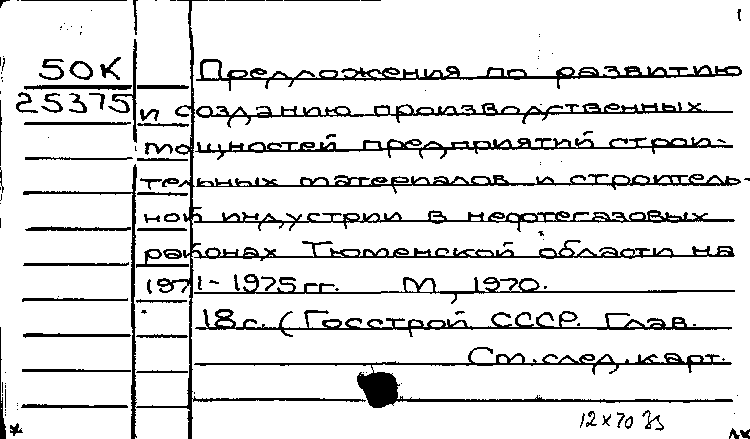 50К Предложения по развитию
25375 и созданию производственных
мощностей предприятий строи-
тельных материалов и строитель-
ной индустрии в нефтегазовых
районах Тюменской области на
1971-1975 гг. М., 1970.
18 с. (Госстрой СССР. Глав.
См. след. карт.
12 x 70